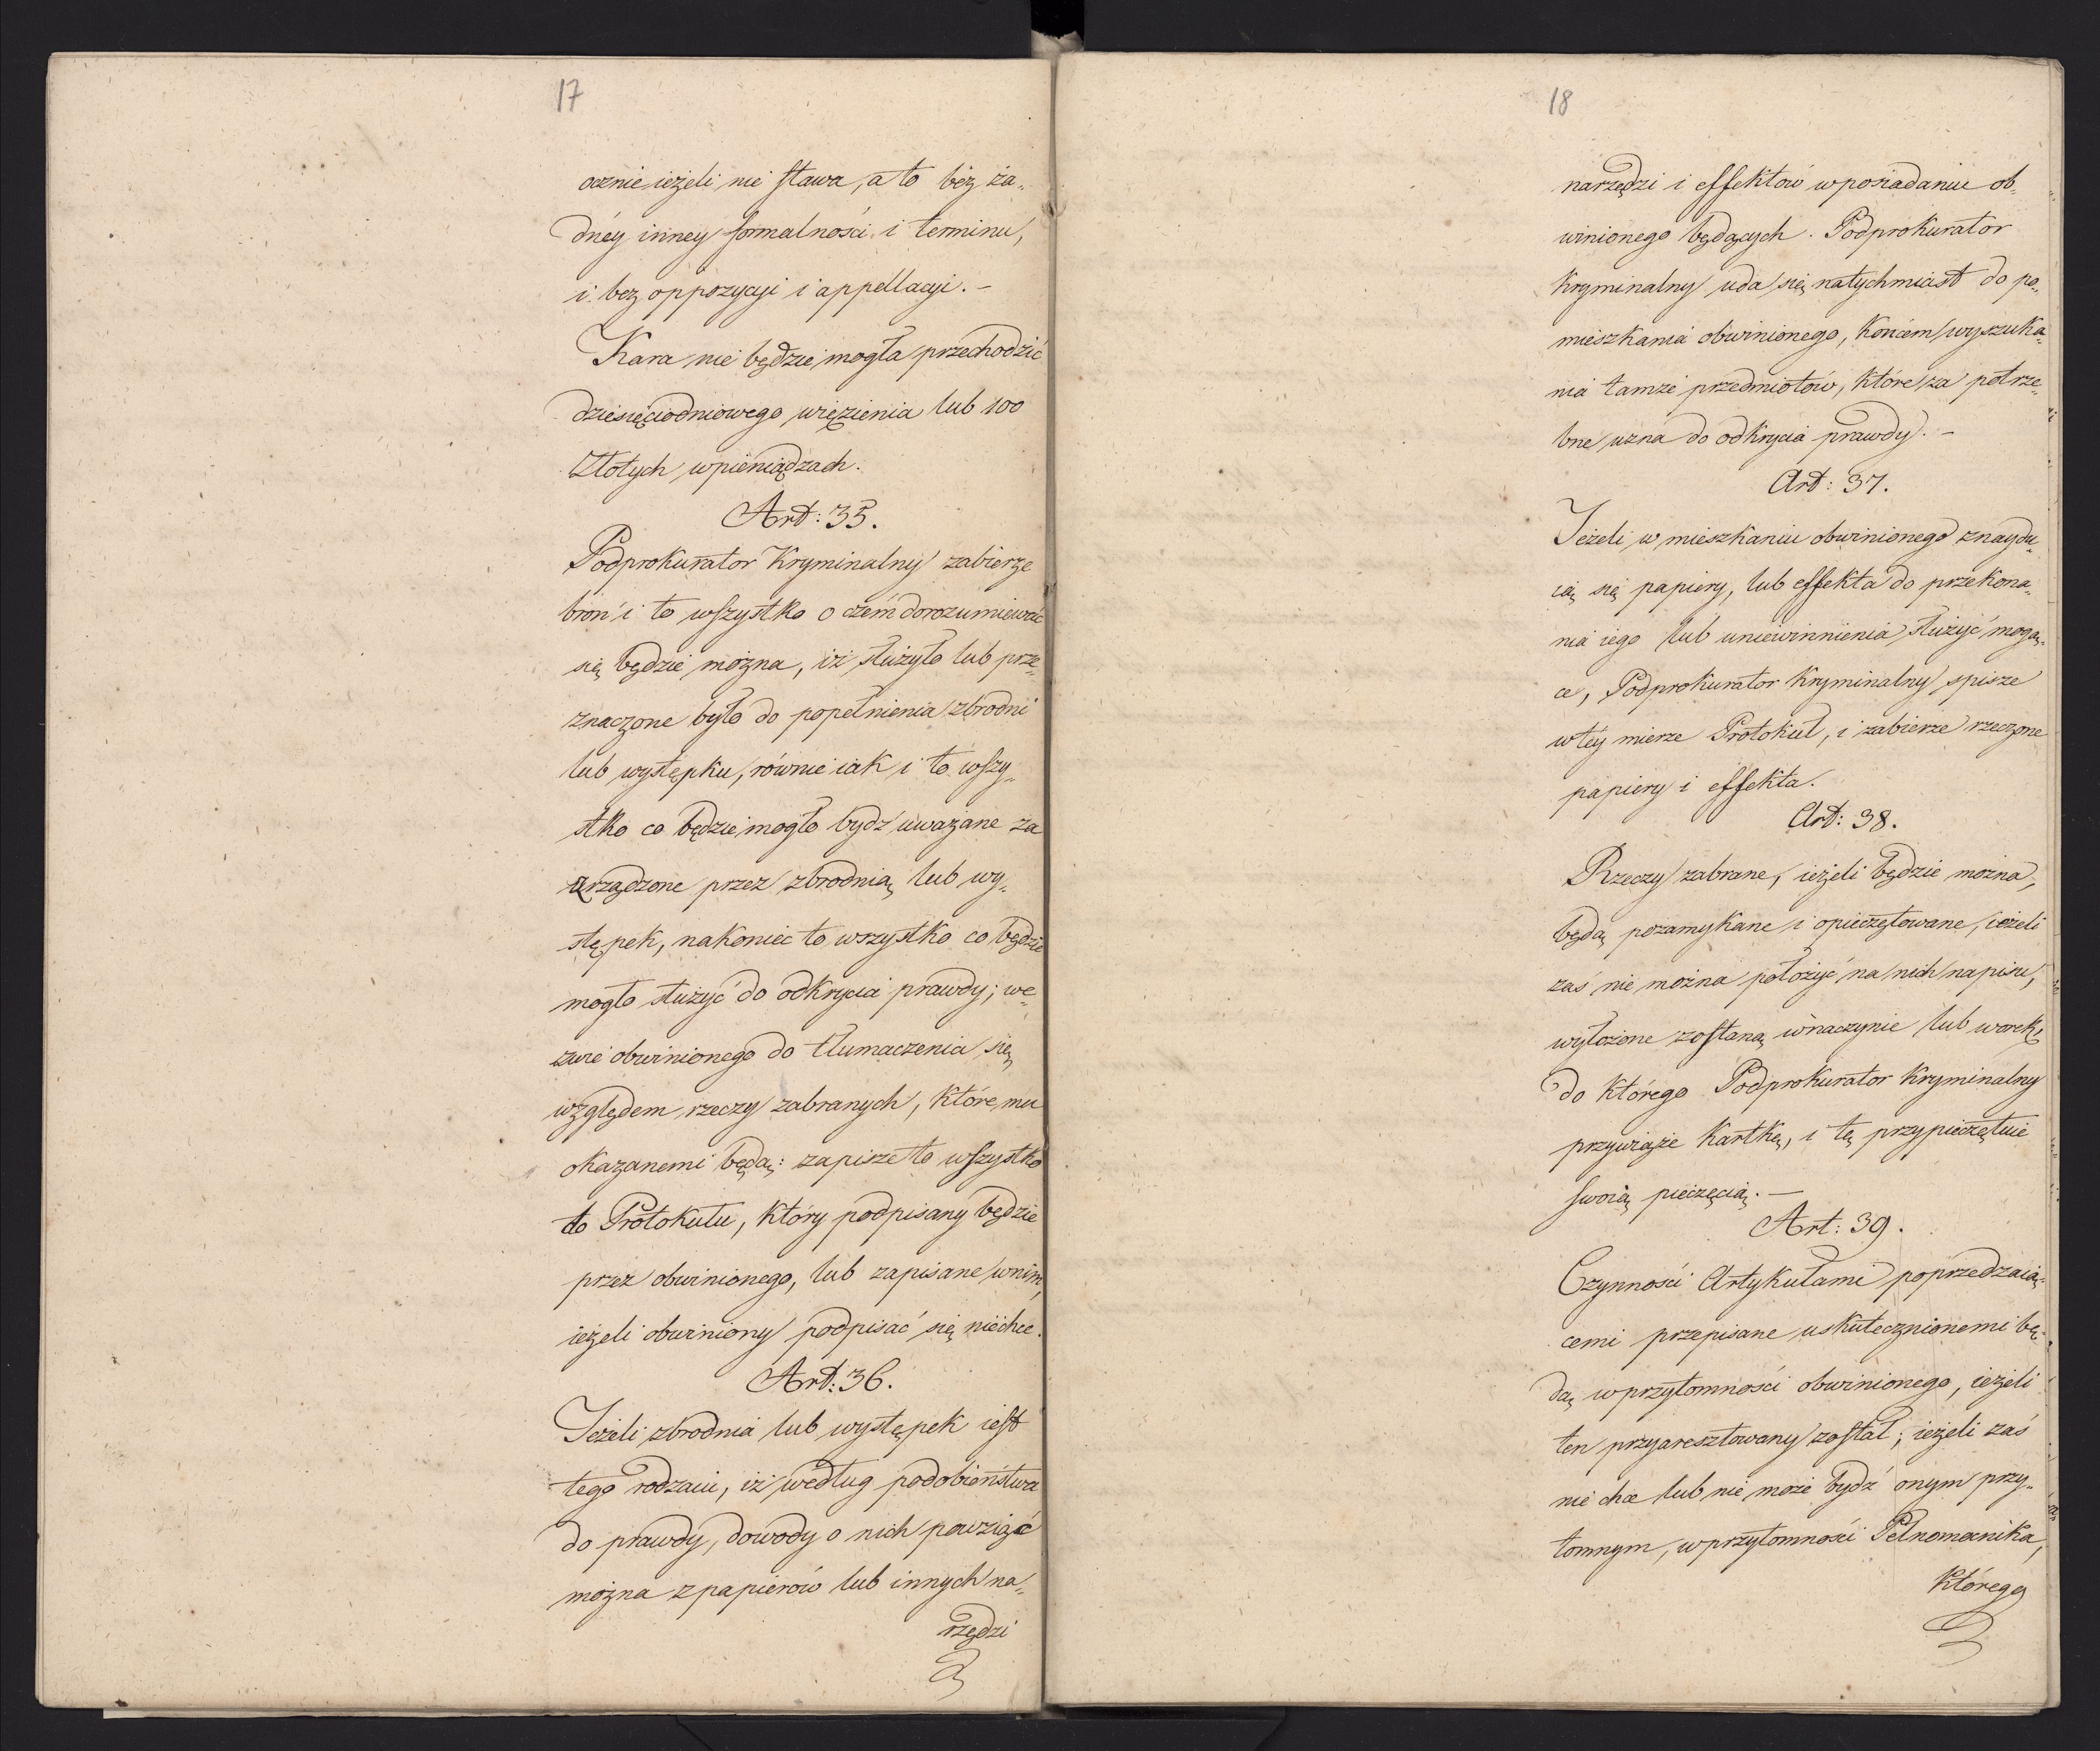 17
ocznie ieżeli nie stawa, a to bez ża„
dnéy inney formalności i terminu,
i bez oppozycyi i appellacyi. –
Kara nie będzie mogła przechodzić
dziesięciodniowego więzienia lub 100
Złotych w pieniądzach.
Art: 35.
Podprokurator Kryminalny zabierze
broń i to wszystko o czém dorozumiewać
się będzie można, iż służyło lub prze„
znaczone było do popełnienia zbrodni
lub występku, równie iak i to wszy„
stko co będzie mogło bydź uważane za
urządzone przez zbrodnią lub wy„
stępek, nakoniec to wszystko co będzie
mogło służyć do odkrycia prawdy; we„
zwie obwinionego do tłumaczenia się
względem rzeczy zabranych, które mu
okazanemi będą: zapisze to wszystko
do Protokułu, który podpisany będzie
przez obwinionego, lub zapisane w nim,
ieżeli obwiniony podpisać się niechce.
Art: 36.
Jeżeli zbrodnia lub występek iest
tego rodzaiu, iż według podobieństwa
do prawdy, dowody o nich powziąść
można z papierów lub innych na„
rzędzi
18
narzędzi i effektów w posiadaniu ob„
winionego będących. Podprokurator
Kryminalny uda się natychmiast do po„
mieszkania obwinionego, końcem wyszuka„
nia tamże przedmiotów, które za potrze„
bne uzna do odkrycia prawdy. –
Art: 37.
Jeżeli w mieszkaniu obwinionego znaydu„
ią się papiery, lub effekta do przekona„
nia iego lub uniewinnienia służyć mogą„
ce, Podprokurator Kryminalny spisze
w téy mierze Protokuł, i zabierze rzeczone
papiery i effekta.
Art: 38.
Rzeczy zabrane, ieżeli będzie można,
będą pozamykane i opieczętowane, ieżeli
zaś nie można położyć na nich napisu,
wyłożone zostaną w naczynie lub worek,
do którego Podprokurator Kryminalny
przywiąże kartkę, i tę przypieczętuie
swoią pieczęcią. –
Art: 39.
Czynności Artykułami poprzedzaią„
cemi przepisane uskutecznionemi bę„
dą w przytomności obwinionego, ieżeli
ten przyaresztowany został; ieżeli zaś
nie chce lub nie może bydź onym przy„
tomnym, w przytomności Pełnomocnika,
którego